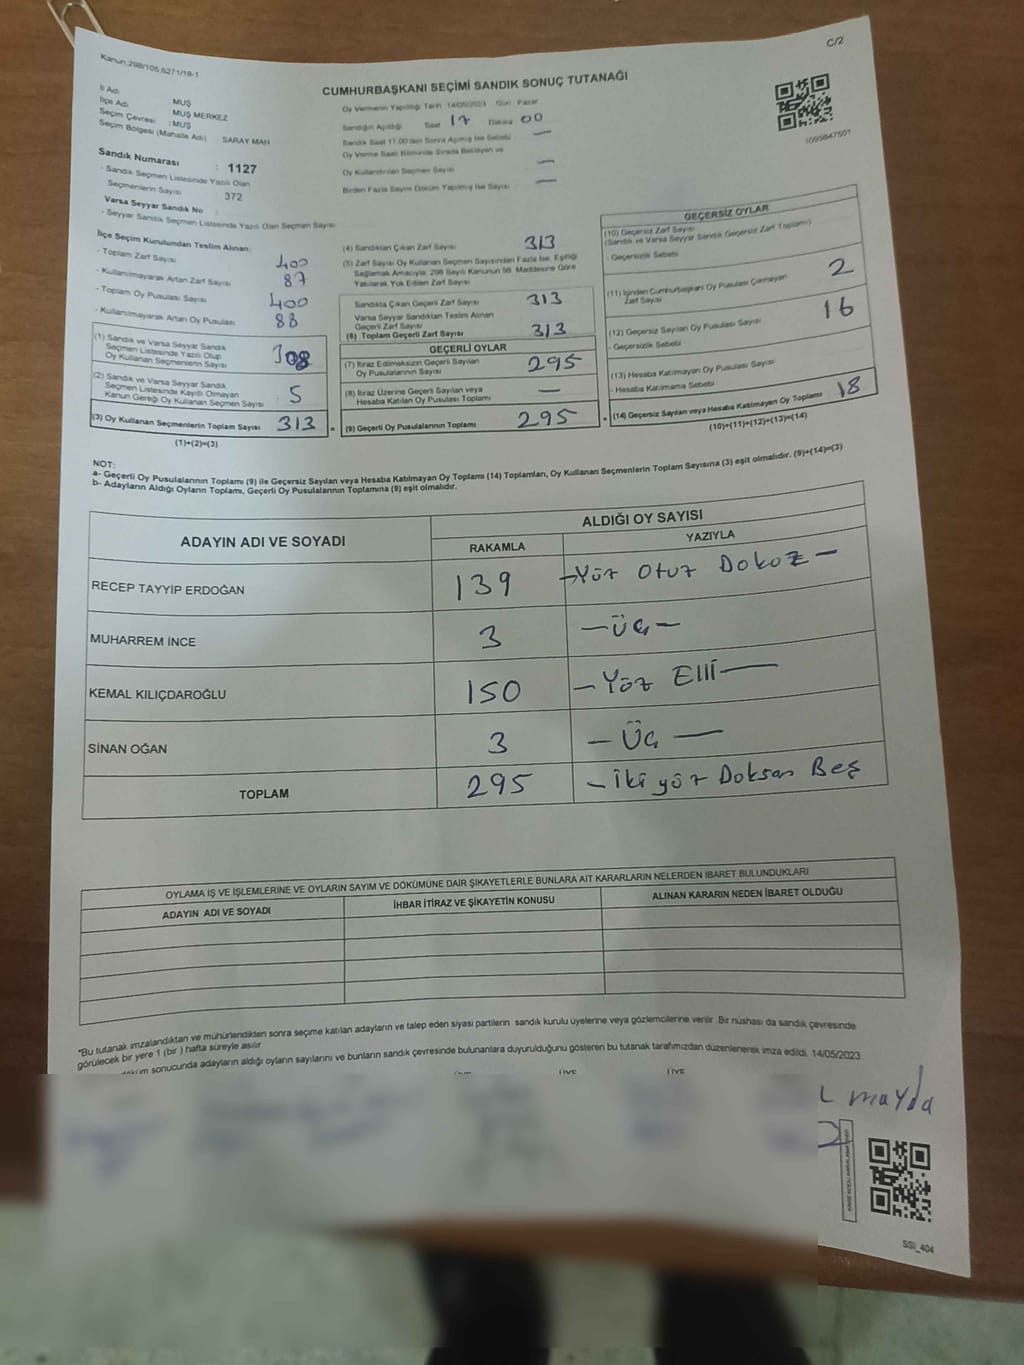 Kanun:298/105,6271/18-1
C/2
CUMHURBAŞKANI SEÇİMİ SANDIK SONUÇ TUTANAĞI
İl Adı : MUŞ
İlçe Adı : MUŞ MERKEZ
Seçim Çevresi : MUŞ
Seçim Bölgesi (Mahalle Adı) : SARAY MAH
Oy Vermenin Yapıldığı Tarih : 14/05/2023 Gün : Pazar
Sandığın Açıldığı Saat 17 Dakika 00
Sandık Saat 17:00'den Sonra Açılmış İse Sebebi —
Oy Verme Saati Bitiminde Sırada Bekleyen ve
Oy Kullandırılan Seçmen Sayısı —
Birden Fazla Sayım Döküm Yapılmış İse Sayısı —
1099847501
Sandık Numarası : 1127
- Sandık Seçmen Listesinde Yazılı Olan
Seçmenlerin Sayısı : 372
Varsa Seyyar Sandık No :
- Seyyar Sandık Seçmen Listesinde Yazılı Olan Seçmen Sayısı :
İlçe Seçim Kurulundan Teslim Alınan:
- Toplam Zarf Sayısı 400
- Kullanılmayarak Artan Zarf Sayısı 87
- Toplam Oy Pusulası Sayısı 400
- Kullanılmayarak Artan Oy Pusulası 88
(1) Sandık ve Varsa Seyyar Sandık
Seçmen Listesinde Yazılı Olup
Oy Kullanan Seçmenlerin Sayısı 308
(2) Sandık ve Varsa Seyyar Sandık
Seçmen Listesinde Kayıtlı Olmayan
Kanun Gereği Oy Kullanan Seçmen Sayısı 5
(3) Oy Kullanan Seçmenlerin Toplam Sayısı 313
(1)+(2)=(3)
(4) Sandıktan Çıkan Zarf Sayısı 313
(5) Zarf Sayısı Oy Kullanan Seçmen Sayısından Fazla İse, Eşitliği
Sağlamak Amacıyla, 298 Sayılı Kanunun 98. Maddesine Göre
Yakılarak Yok Edilen Zarf Sayısı
Sandıkta Çıkan Geçerli Zarf Sayısı 313
Varsa Seyyar Sandıktan Teslim Alınan
Geçerli Zarf Sayısı
(6) Toplam Geçerli Zarf Sayısı 313
GEÇERLİ OYLAR
(7) İtiraz Edilmeksizin Geçerli Sayılan
Oy Pusulalarının Sayısı 295
(8) İtiraz Üzerine Geçerli Sayılan veya
Hesaba Katılan Oy Pusulası Toplamı —
= (9) Geçerli Oy Pusulalarının Toplamı 295
GEÇERSİZ OYLAR
(10) Geçersiz Zarf Sayısı
(Sandık ve Varsa Seyyar Sandık Geçersiz Zarf Toplamı)
- Geçersizlik Sebebi
(11) İçinden Cumhurbaşkanı Oy Pusulası Çıkmayan
Zarf Sayısı 2
(12) Geçersiz Sayılan Oy Pusulası Sayısı 16
- Geçersizlik Sebebi
(13) Hesaba Katılmayan Oy Pusulası Sayısı
- Hesaba Katılmama Sebebi
+ (14) Geçersiz Sayılan veya Hesaba Katılmayan Oy Toplamı 18
(10)+(11)+(12)+(13)=(14)
NOT:
a- Geçerli Oy Pusulalarının Toplamı (9) ile Geçersiz Sayılan veya Hesaba Katılmayan Oy Toplamı (14) Toplamları, Oy Kullanan Seçmenlerin Toplam Sayısına (3) eşit olmalıdır. (9)+(14)=(3)
b- Adayların Aldığı Oyların Toplamı, Geçerli Oy Pusulalarının Toplamına (9) eşit olmalıdır.
ADAYIN ADI VE SOYADI ALDIĞI OY SAYISI
RAKAMLA YAZIYLA
RECEP TAYYİP ERDOĞAN 139 — Yüz Otuz Dokuz —
MUHARREM İNCE 3 — Üç —
KEMAL KILIÇDAROĞLU 150 — Yüz Elli —
SİNAN OĞAN 3 — Üç —
TOPLAM 295 — İki yüz Doksan Beş
OYLAMA İŞ VE İŞLEMLERİNE VE OYLARIN SAYIM VE DÖKÜMÜNE DAİR ŞİKAYETLERLE BUNLARA AİT KARARLARIN NELERDEN İBARET BULUNDUKLARI
ADAYIN ADI VE SOYADI İHBAR İTİRAZ VE ŞİKAYETİN KONUSU ALINAN KARARIN NEDEN İBARET OLDUĞU
*Bu tutanak imzalandıktan ve mühürlendikten sonra seçime katılan adayların ve talep eden siyasi partilerin sandık kurulu üyelerine veya gözlemcilerine verilir. Bir nüshası da sandık çevresinde
görülecek bir yere 1 (bir ) hafta süreyle asılır.
döküm sonucunda adayların aldığı oyların sayılarını ve bunların sandık çevresinde bulunanlara duyurulduğunu gösteren bu tutanak tarafımızdan düzenlenerek imza edildi. 14/05/2023
ÜYE ÜYE ÜYE
SSI_404